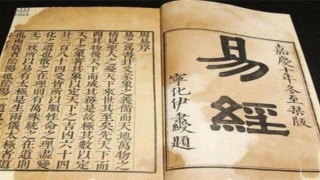 嘉慶七年冬至栞版
易經
寧化伊秉綬題
周易序
易之為書卦爻彖象之義備而天地萬物之
情見聖人之憂天下來世其至矣先天下而
開其物後天下而成其務是故極其數以定
天下之象著其象以定天下之吉凶六十四
卦三百八十四爻皆所以順性命之理盡變
化之道也散之在理則有萬殊統之在道則
無二致所以易有太極是生兩儀太極者道